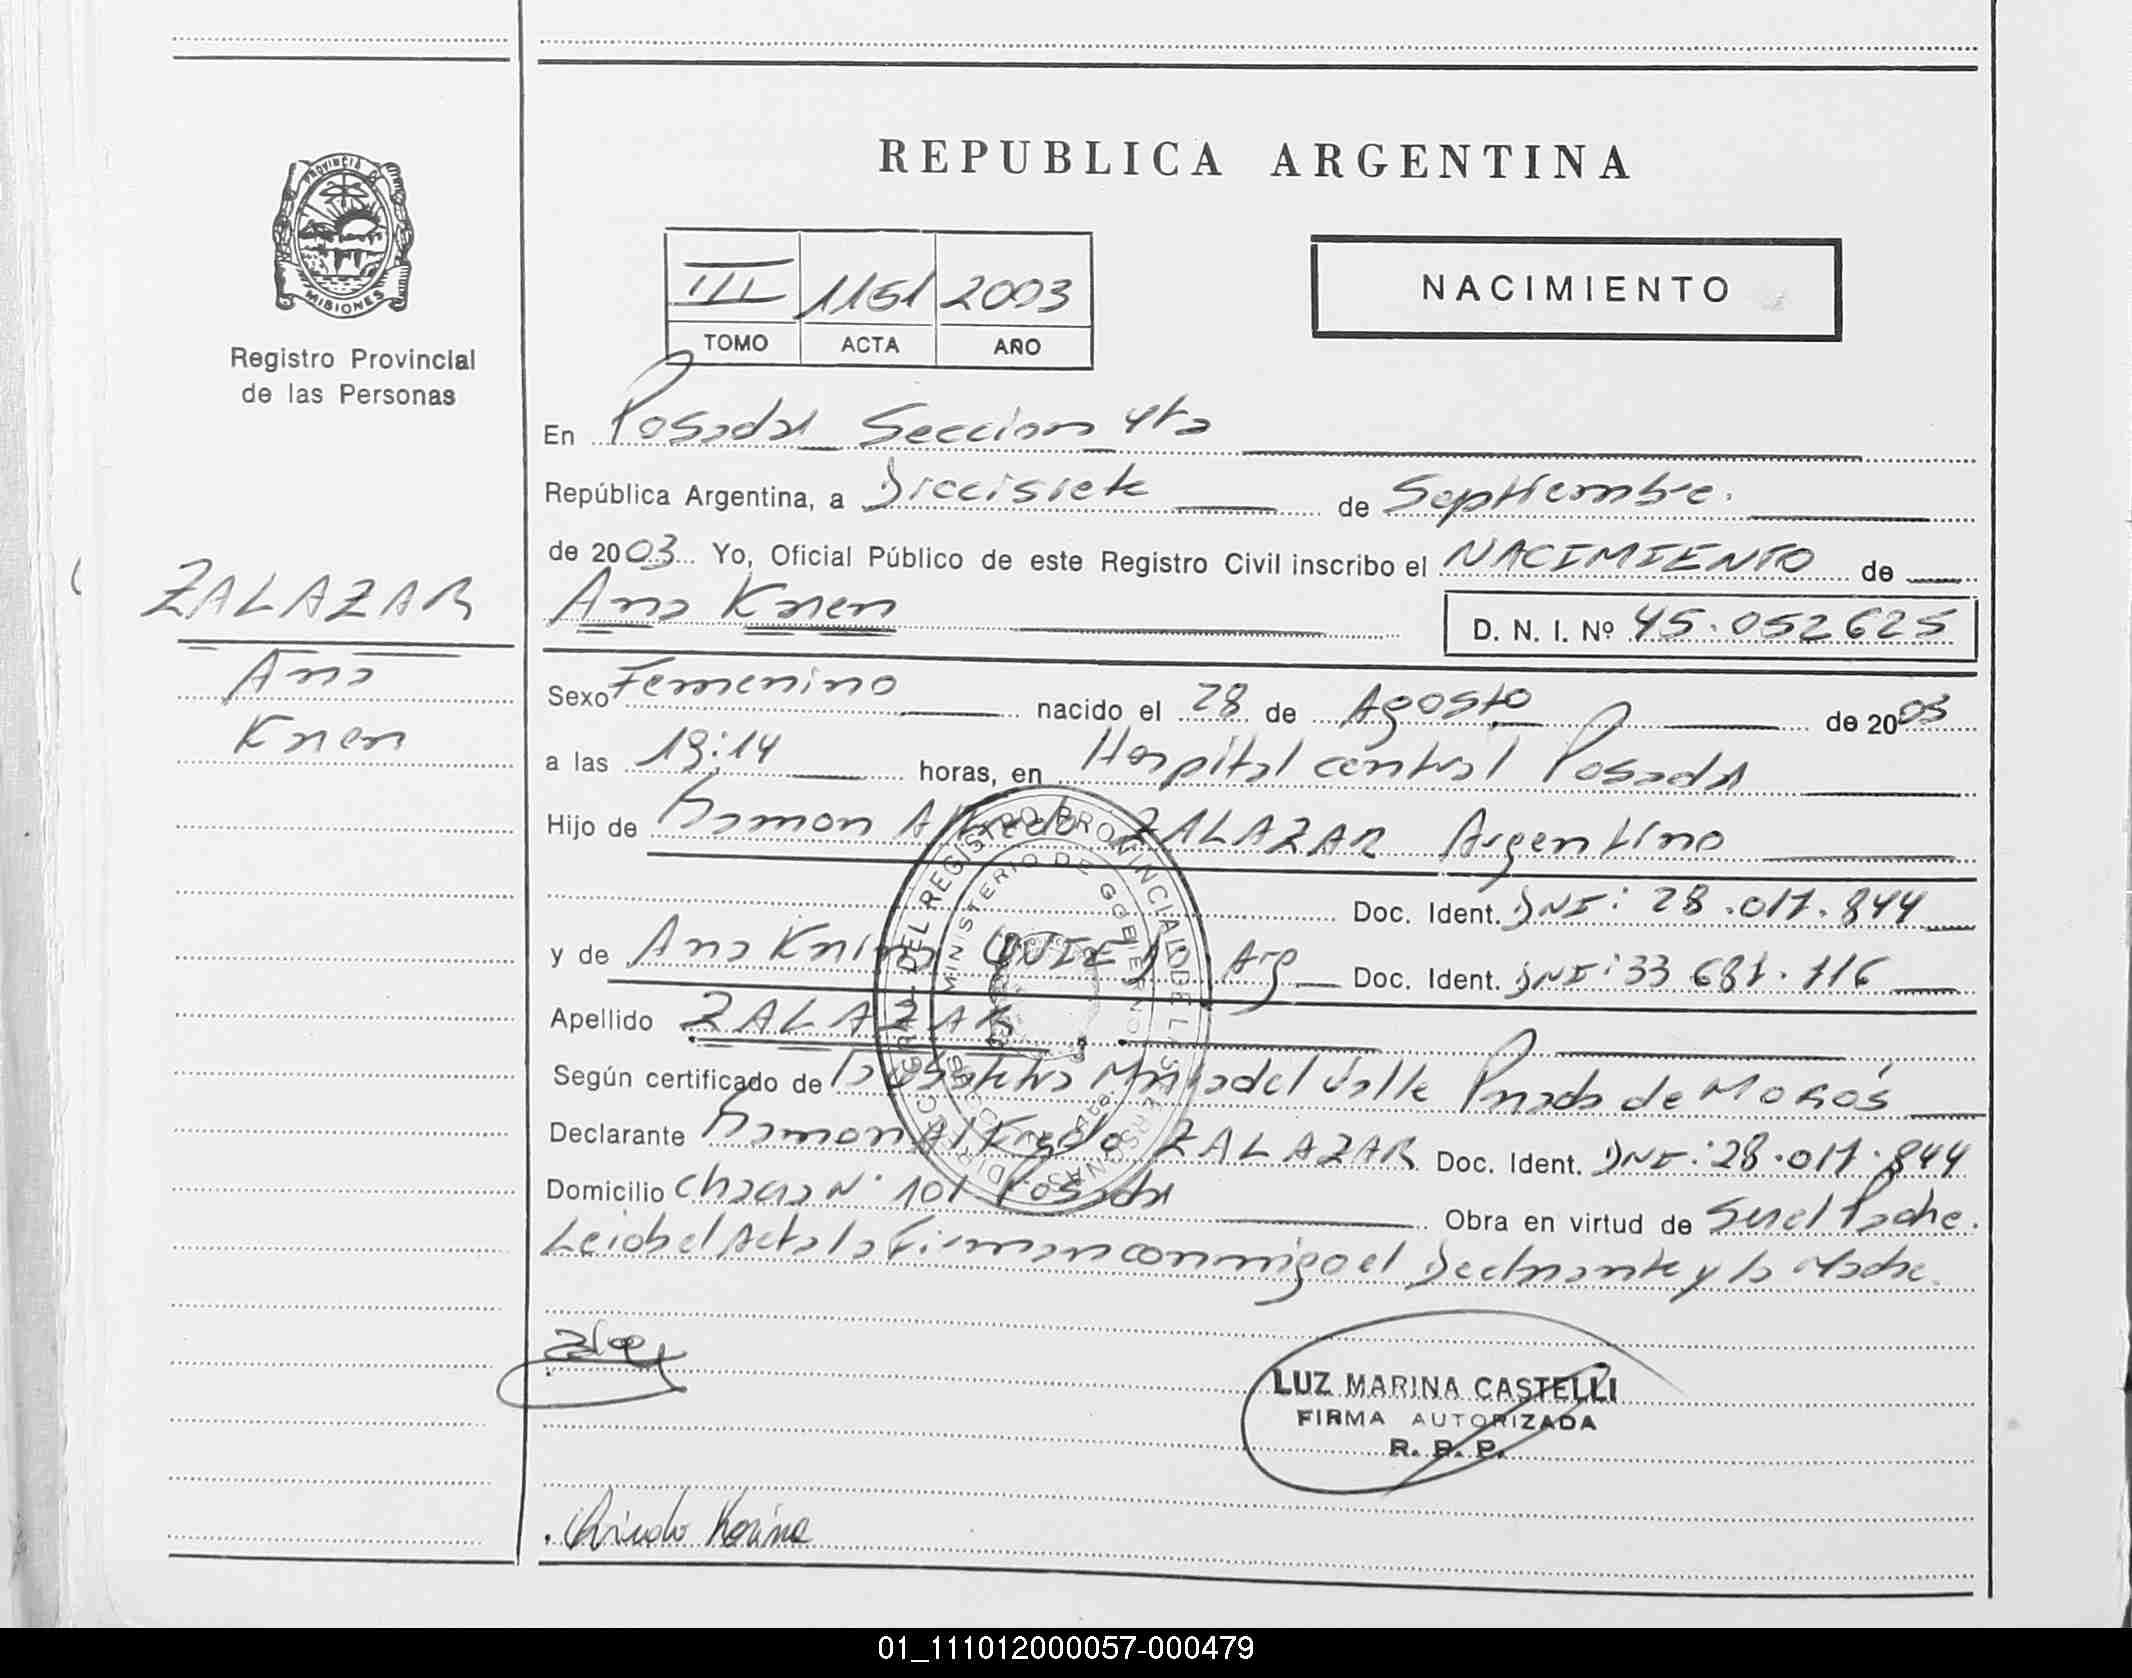 REPUBLICA ARGENTINA
PROVINCIA DE
MISIONES
Registro Provincial
de las Personas
III 1151 2003
TOMO ACTA AÑO
NACIMIENTO
En Posadas Seccion 4ta
República Argentina, a Diecisiete de Septiembre.
de 2003 Yo, Oficial Público de este Registro Civil inscribo el NACIMIENTO de
ZALAZAR
Ana
Karen
Ana Karen D. N. I. Nº 45.052625
Sexo Femenino nacido el 28 de Agosto de 2003
a las 19:14 horas, en Hospital central Posadas
Hijo de Ramon Alfredo ZALAZAR Argentino
Doc. Ident. DNI: 28.017.844
y de Ana Karina Arg Doc. Ident. DNI: 33 681.116
Apellido ZALAZAR
Según certificado de la obstetra Maria del Valle Parada de
Declarante Ramon Alfredo ZALAZAR Doc. Ident. DNI: 28.017.844
Domicilio Chacra Nº 101 Posadas Obra en virtud de Ser el Padre.
Leida el Acta la Firman conmigo el Declarante y la Madre.
DIRECC. GRAL. DEL REGISTRO PROVINCIAL DE LAS PERSONAS
MINISTERIO DE GOBIERNO
LUZ MARINA CASTELLI
FIRMA AUTORIZADA
R. P. P.
Karina
01_111012000057-000479